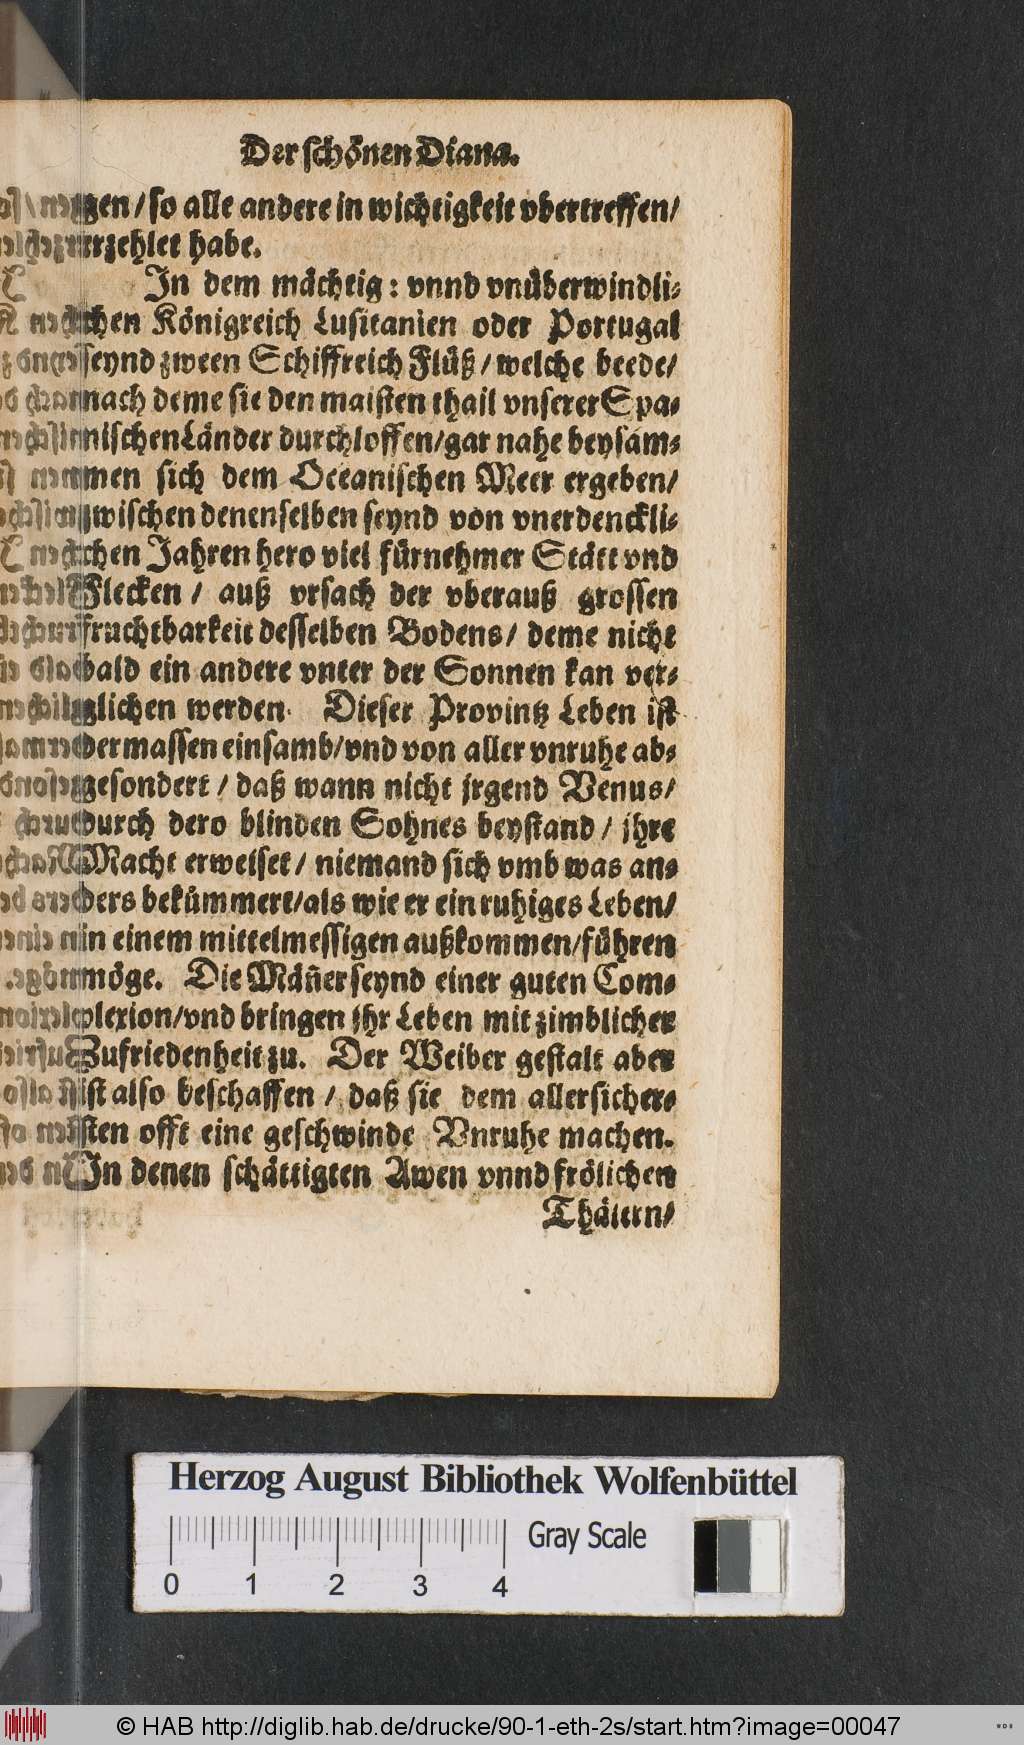 Der schönen Diana.
gen / so alle andere in wichtigkeit vbertreffen /
erzehlet habe.
In dem mächtig: vnnd vnüberwindli-
chen Königreich Lusitanien oder Portugal
seynd zween Schiffreich Flüß / welche beede /
nach deme sie den maisten thail vnserer Spa-
nischen Länder durchloffen / gar nahe beysam-
men sich dem Oceanischen Meer ergeben /
zwischen denenselben seynd von vnerdenckli-
chen Jahren hero viel fürnehmer Stätt vnd
Flecken / auß vrsach der vberauß grossen
fruchtbarkeit desselben Bodens / deme nicht
bald ein andere vnter der Sonnen kan ver-
glichen werden. Dieser Provintz Leben ist
dermassen einsamb / vnd von aller vnruhe ab-
gesondert / daß wann nicht jrgend Venus /
durch dero blinden Sohnes beystand / jhre
Macht erweiset / niemand sich vmb was an-
ders bekümmert / als wie er ein ruhiges Leben /
in einem mittelmessigen außkommen / führen
möge. Die Mäñer seynd einer guten Com-
plexion / vnd bringen jhr Leben mit zimblicher
Zufriedenheit zu. Der Weiber gestalt aber
ist also beschaffen / daß sie dem allersicher-
sten offt eine geschwinde Vnruhe machen.
In denen schättigten Awen vnnd frölichen
Thälern /
Herzog August Bibliothek Wolfenbüttel
Gray Scale
0 1 2 3 4
© HAB http://diglib.hab.de/drucke/90-1-eth-2s/start.htm?image=00047